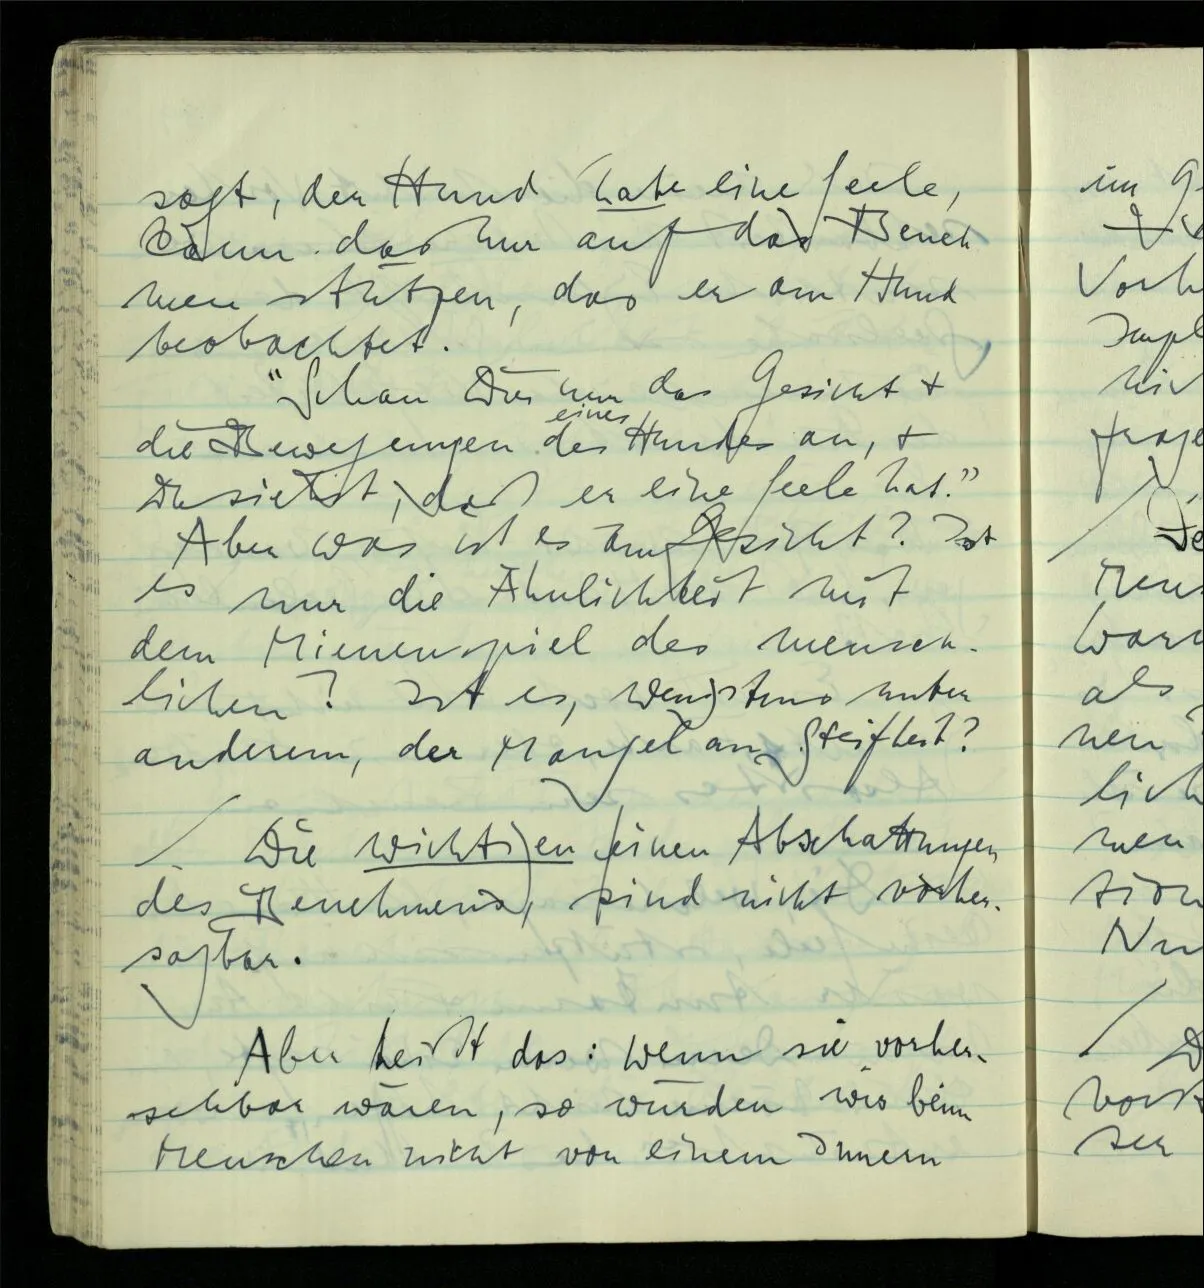 sagt, der Hund habe eine Seele,
kann das nur auf das Beneh
men stützen, das er am Hund
beobachtet.
"Schau Dir nur das Gesicht +
die Bewegungen des Hundes an, +
eines
Du siehst, daß er eine Seele hat."
Aber was ist es am Gesicht? Ist
es nur die Ähnlichkeit mit
dem Mienenspiel des mensch-
lichen? Ist es, wenigstens unter
anderem, der Mangel an Steifheit?
/ Die wichtigen feinen Abschattungen
des Benehmens, sind nicht vorher-
sagbar.
Aber heißt das: wenn sie vorher-
sehbar wären, so würden wir beim
Menschen nicht von einem Innern
im
Vorh
Impl
nic
frage
/
Men
als
nen
lich
men
tion
Nu
/
vor
ser